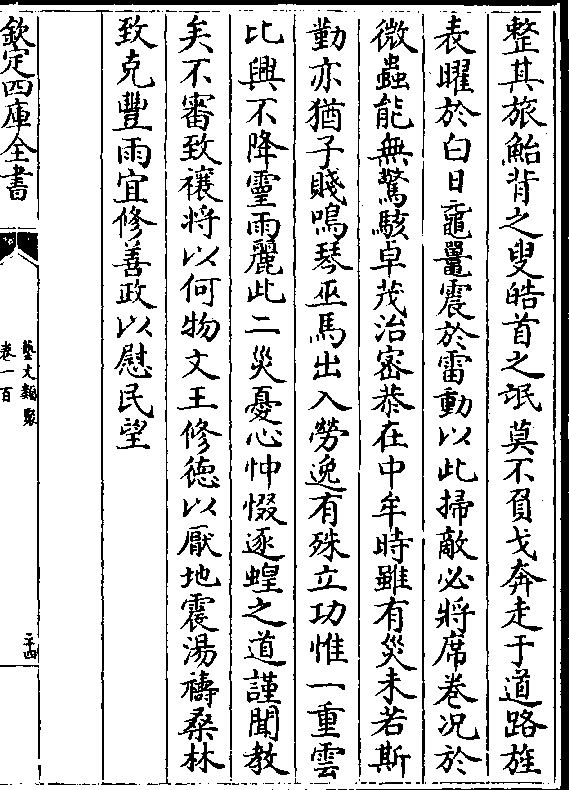 整其旅鮐背之叟皓首之氓莫不負戈奔走于道路旌
表曜於白日黿鼉震於雷動以此掃敵必將席卷况於
微蟲能無驚駭卓茂治密恭在中牟時雖有災未若斯
勤亦猶子賤鳴琴巫馬出入勞逸有殊立功惟一重雲
比興不降靈雨麗此二災憂心忡惙逐蝗之道謹聞教
矣不審致禳將以何物文王修德以厭地震湯禱桑林
致克豐雨宜修善政以慰民望
欽定四庫全書
藝文類聚
卷一百
二十四